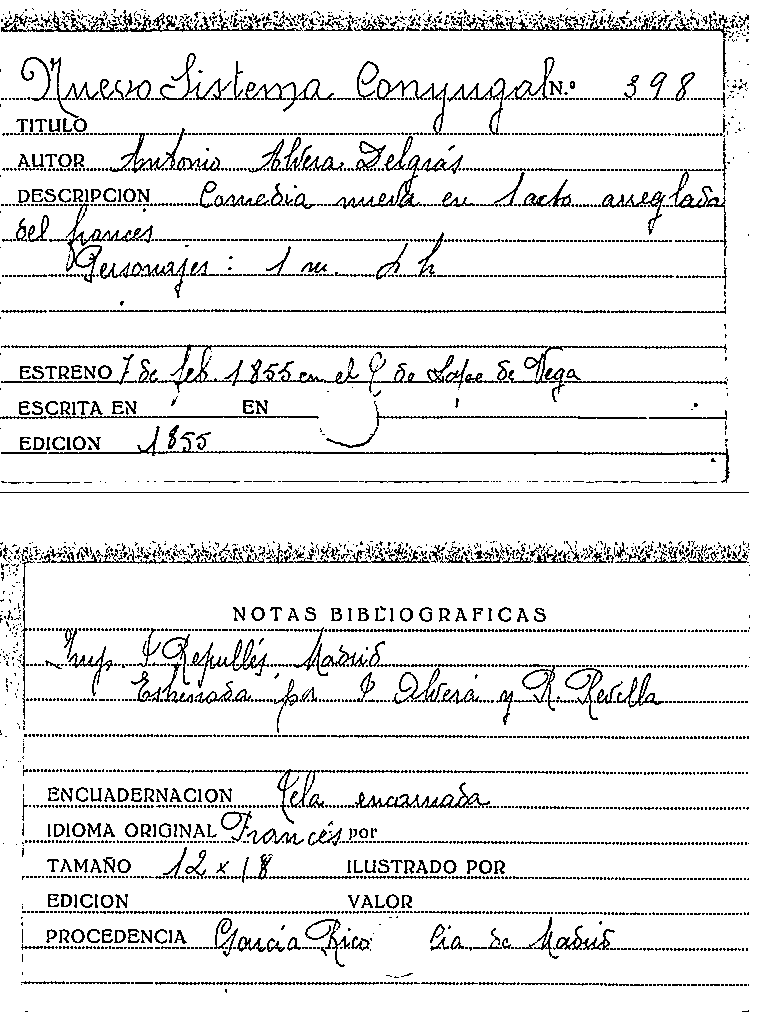 Nuevo Sistema Conyugal N.º 398
TITULO
AUTOR Antonio Alvera Delgrás
DESCRIPCION Comedia nueva en 1 acto arreglada
del francés
Personajes: 1 m. 4 h
ESTRENO 7 de feb. 1855 en el T de Lope de Vega
ESCRITA EN EN
EDICION 1855
NOTAS BIBLIOGRAFICAS
Imp. Repullés Madrid
Estrenada por Alverá y R. Revilla
ENCUADERNACION Tela encarnada
IDIOMA ORIGINAL Francés por
TAMAÑO 12 x 18 ILUSTRADO POR
EDICION VALOR
PROCEDENCIA García Rico Cia. de Madrid